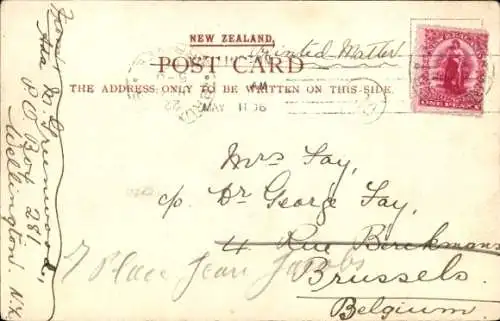 NEW ZEALAND.
Printed Matter
POST CARD
THE ADDRESS ONLY TO BE WRITTEN ON THIS SIDE.
MAY 11 06
ONE PENNY
Mrs Fay,
c/o Dr George Fay,
4 Rue Berckmans
7 Place Jean Jacobs
Brussels.
Belgium.
From
M. Greenwood,
P O Box 281
Wellington. N.Z.